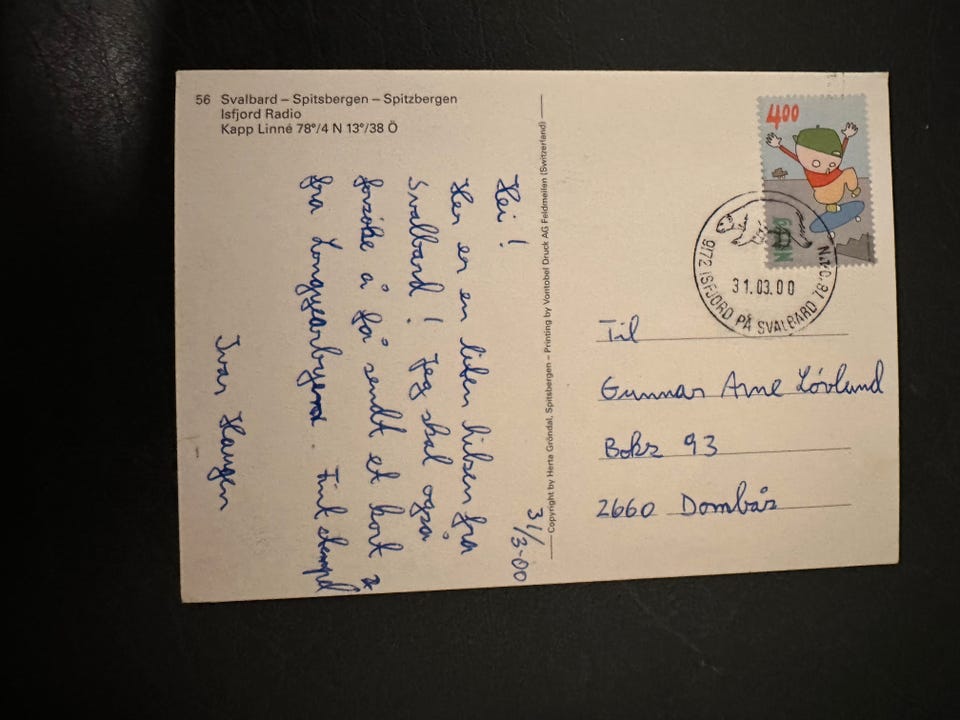 56 Svalbard – Spitsbergen – Spitzbergen
Isfjord Radio
Kapp Linné 78°/4 N 13°/38 Ö
31/3-00
Hei!
Her er en liten hilsen fra
Svalbard! Jeg skal også
forsøke å få sendt et kort
fra Longyearbyen. Fint stempel
Ivar Haugen
Copyright by Herta Gröndal, Spitsbergen – Printing by Vontobel Druck AG Feldmeilen (Switzerland)
400
9172 ISFJORD PÅ SVALBARD
31.03.00
Til
Gunnar Arne Løvlund
Boks 93
2660 Dombås